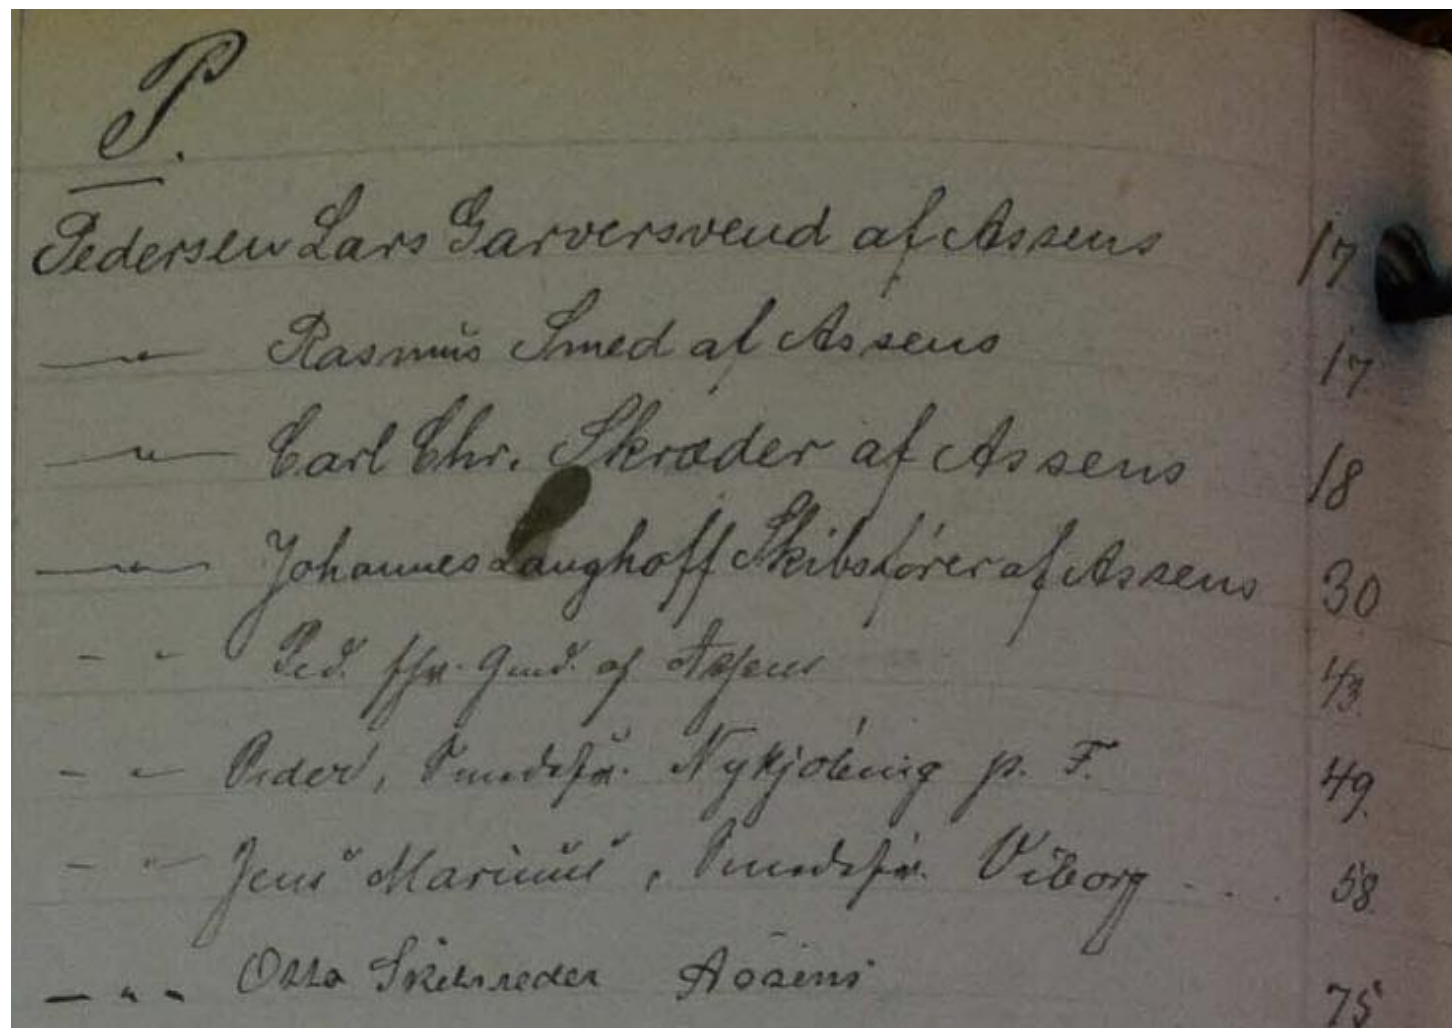 P.
Pedersen Lars Garversvend af Assens 17
— " — Rasmus Smed af Assens 17
— " — Carl Chr. Skræder af Assens 18
— " — Johannes Langhoff Skibsfører af Assens 30
- " - Ped. af Assens 43.
- " - Peder, Nykjøbing p. F. 49.
- " - Jens Marius, Viborg . . . 58.
- " - Otto Skibsreder Assens 75